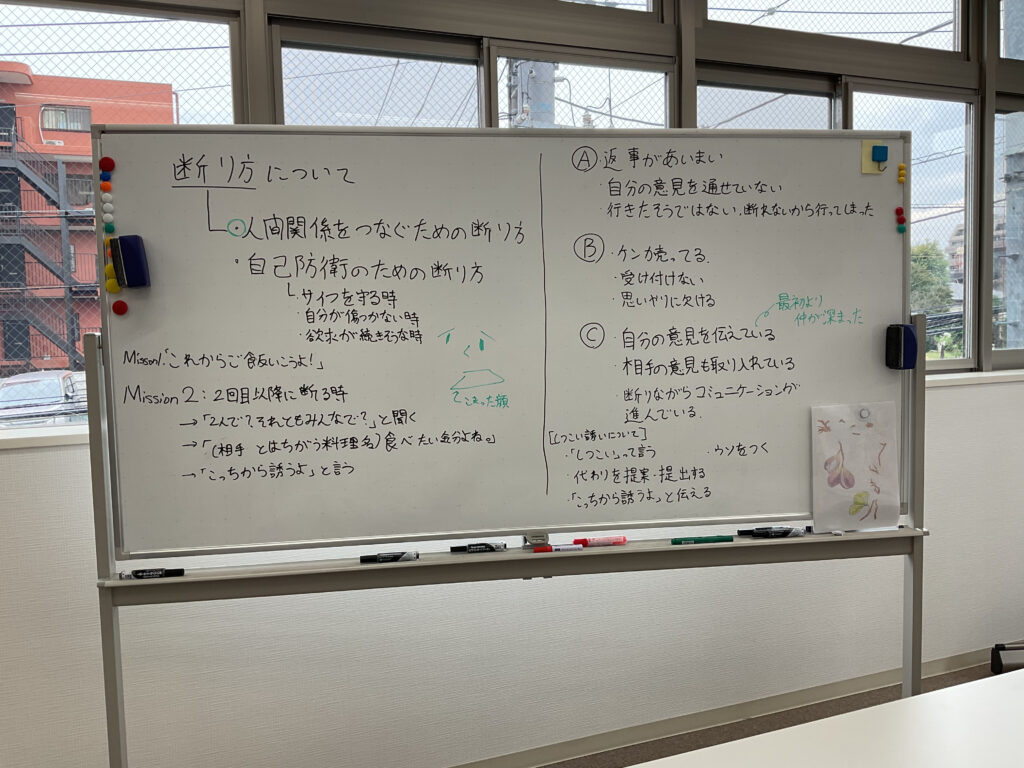 断り方について
・人間関係をつなぐための断り方
・自己防衛のための断り方
サイフを守る時
・自分が傷つかない時
・欲求が続きそうな時
Mission1.「これからご飯いこうよ!」
こまった顔
Mission 2:2回目以降に断る時
→「2人で?それともみんなで?」と聞く
→「(相手とはちがう料理名)食べたい気分よね。」
→「こっちから誘うよ」と言う
Ⓐ・返事があいまい
・自分の意見を通せていない
・行きたそうではない、断れないから行ってしまった
Ⓑ・ケンカ売ってる。
・受け付けない
・思いやりに欠ける
最初より
仲が深まった
Ⓒ・自分の意見を伝えている
・相手の意見も取り入れている
・断りながらコミュニケーションが
進んでいる。
[しつこい誘いについて]
・「しつこい」って言う ・ウソをつく
・代わりを提案・提出する
・「こっちから誘うよ」と伝える